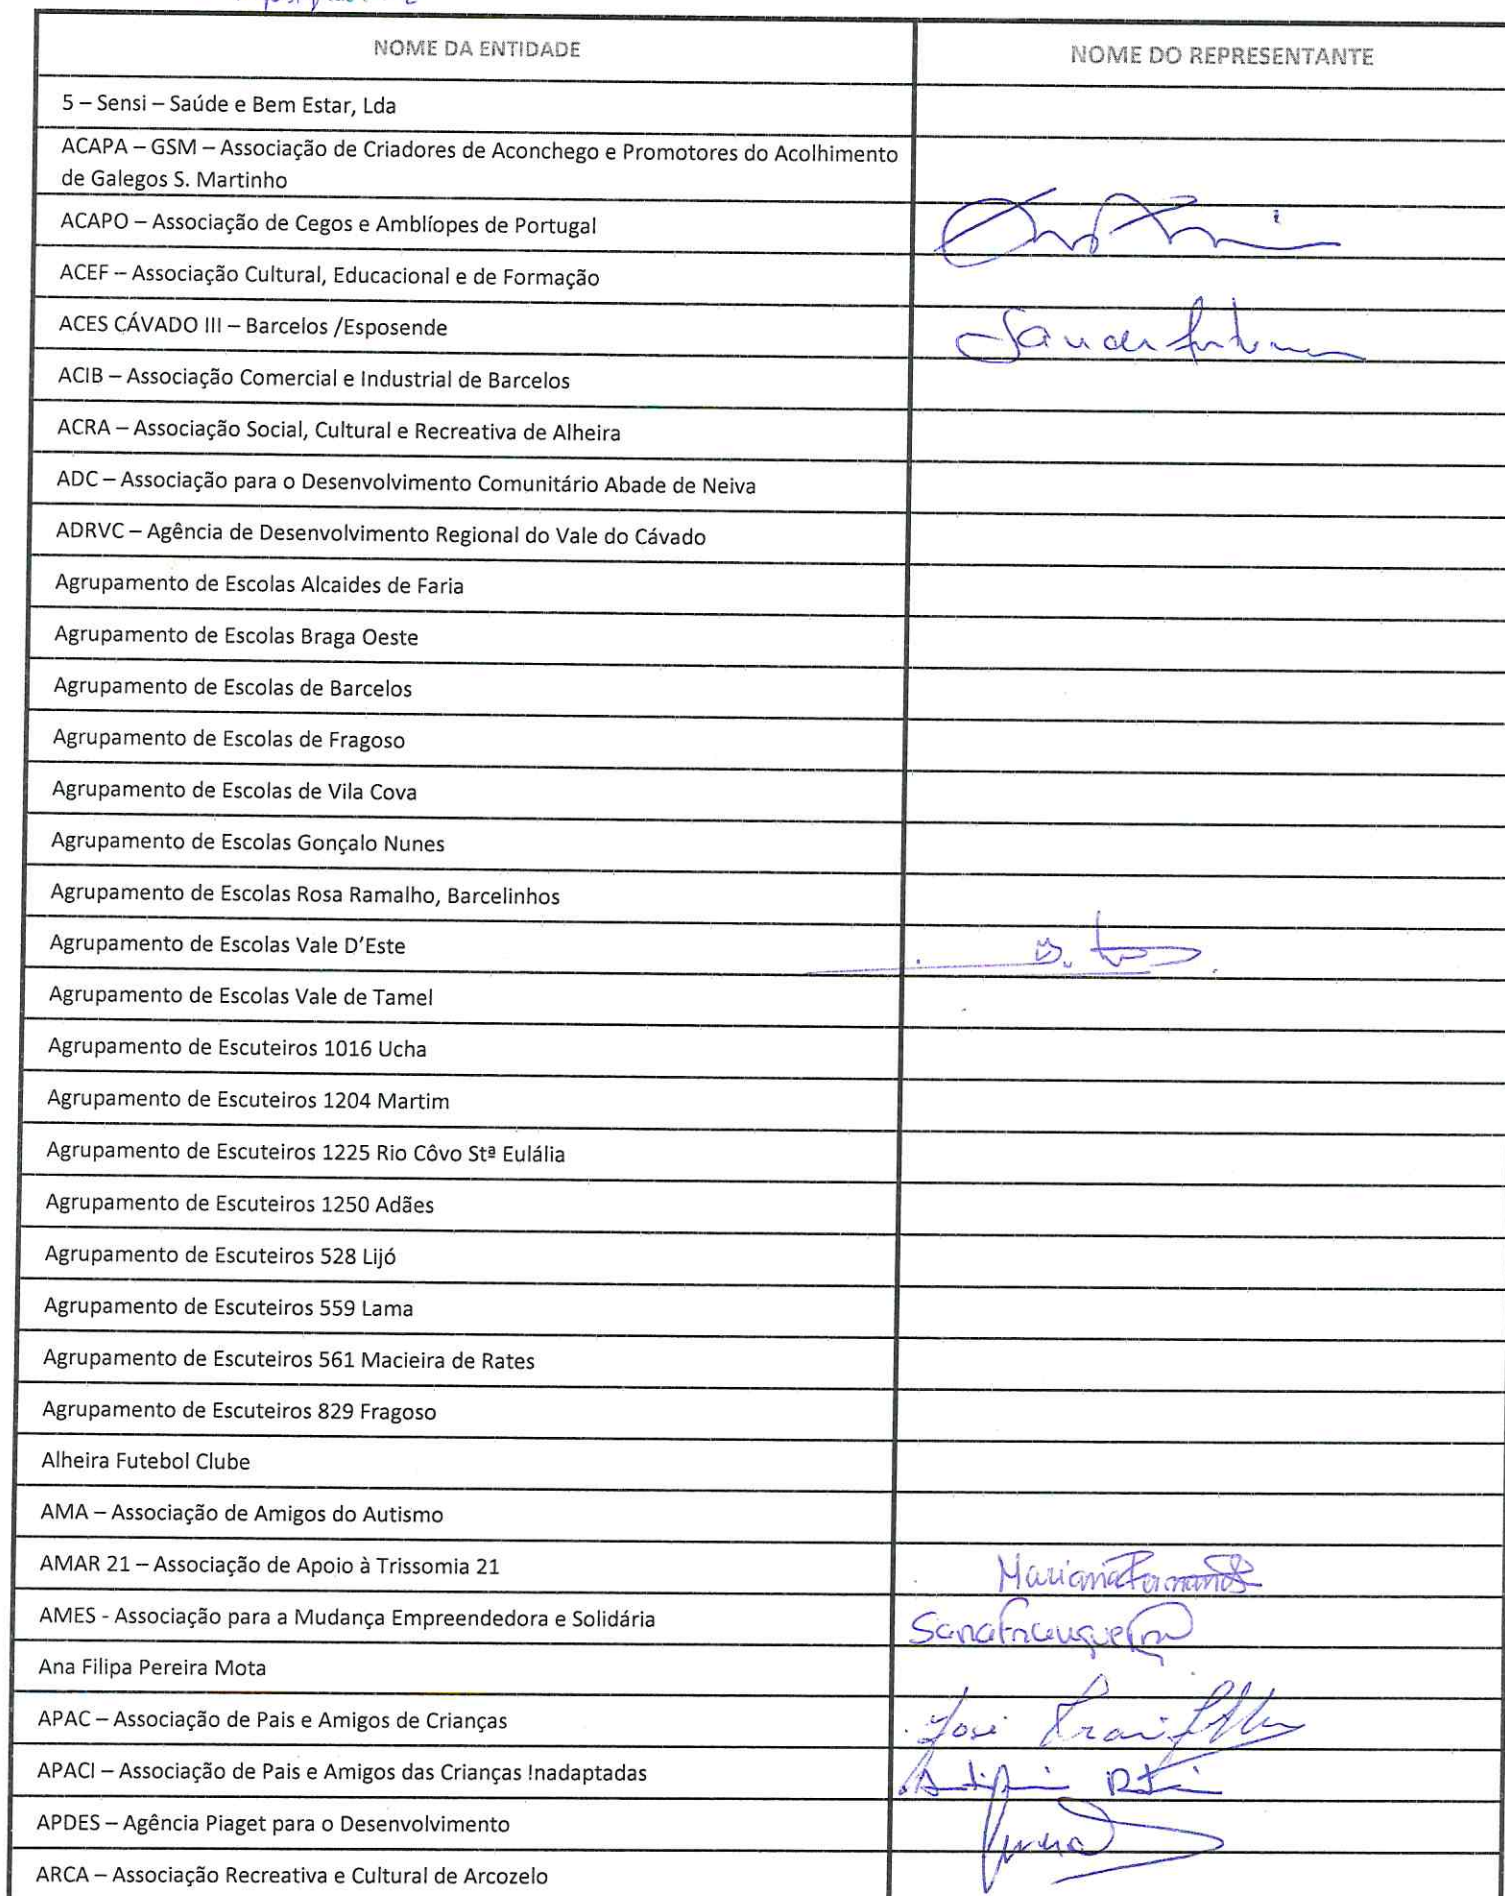 NOME DA ENTIDADE
NOME DO REPRESENTANTE
5 – Sensi – Saúde e Bem Estar, Lda
ACAPA – GSM – Associação de Criadores de Aconchego e Promotores do Acolhimento
de Galegos S. Martinho
ACAPO – Associação de Cegos e Amblíopes de Portugal
ACEF – Associação Cultural, Educacional e de Formação
ACES CÁVADO III – Barcelos /Esposende
ACIB – Associação Comercial e Industrial de Barcelos
ACRA – Associação Social, Cultural e Recreativa de Alheira
ADC – Associação para o Desenvolvimento Comunitário Abade de Neiva
ADRVC – Agência de Desenvolvimento Regional do Vale do Cávado
Agrupamento de Escolas Alcaides de Faria
Agrupamento de Escolas Braga Oeste
Agrupamento de Escolas de Barcelos
Agrupamento de Escolas de Fragoso
Agrupamento de Escolas de Vila Cova
Agrupamento de Escolas Gonçalo Nunes
Agrupamento de Escolas Rosa Ramalho, Barcelinhos
Agrupamento de Escolas Vale D'Este
Agrupamento de Escolas Vale de Tamel
Agrupamento de Escuteiros 1016 Ucha
Agrupamento de Escuteiros 1204 Martim
Agrupamento de Escuteiros 1225 Rio Côvo Stª Eulália
Agrupamento de Escuteiros 1250 Adães
Agrupamento de Escuteiros 528 Lijó
Agrupamento de Escuteiros 559 Lama
Agrupamento de Escuteiros 561 Macieira de Rates
Agrupamento de Escuteiros 829 Fragoso
Alheira Futebol Clube
AMA – Associação de Amigos do Autismo
AMAR 21 – Associação de Apoio à Trissomia 21
Mariana Fernandes
AMES - Associação para a Mudança Empreendedora e Solidária
Ana Filipa Pereira Mota
APAC – Associação de Pais e Amigos de Crianças
José
APACI – Associação de Pais e Amigos das Crianças Inadaptadas
APDES – Agência Piaget para o Desenvolvimento
ARCA – Associação Recreativa e Cultural de Arcozelo